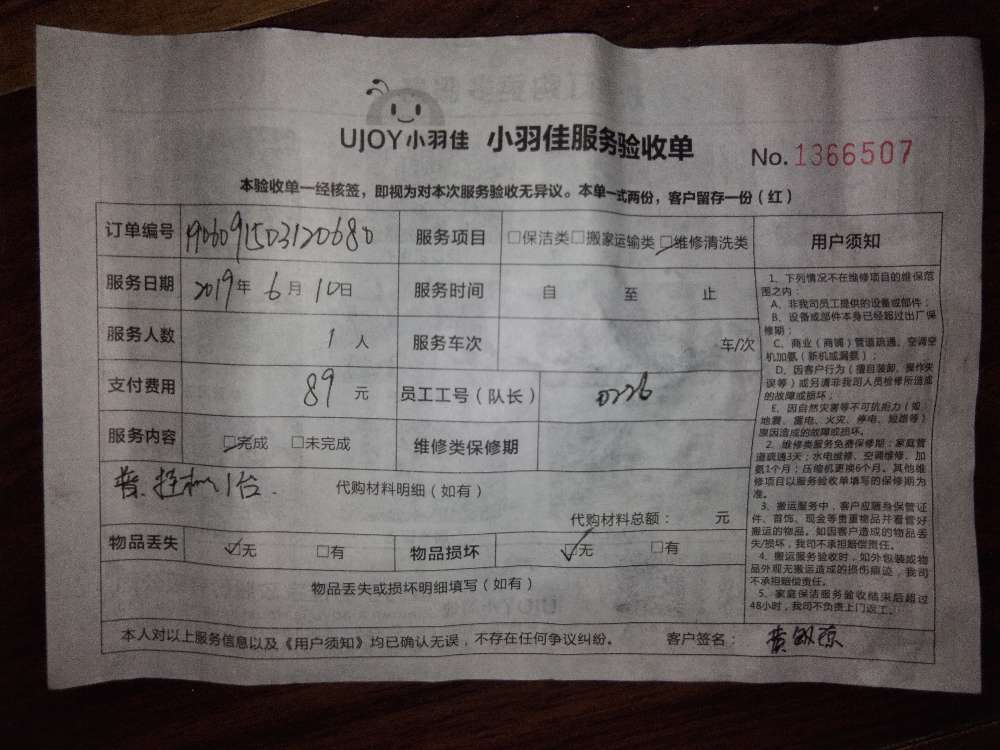 UJOY小羽佳 小羽佳服务验收单
No. 1366507
本验收单一经核签，即视为对本次服务验收无异议。本单一式两份，客户留存一份（红）
订单编号 190609150312068 0 服务项目 □保洁类□搬家运输类□维修清洗类
服务日期 2019年 6月 10日 服务时间 自 至 止
服务人数 1 人 服务车次 车/次
支付费用 89 元 员工工号（队长） 0226
服务内容 □完成 □未完成 维修类保修期
普 挂机1台. 代购材料明细（如有）
代购材料总额： 元
物品丢失 ☑无 □有 物品损坏 ☑无 □有
物品丢失或损坏明细填写（如有）
用户须知
1、下列情况不在维修项目的维保范
围之内：
A、非我司员工提供的设备或部件；
B、设备或部件本身已经超过出厂保
修期；
C、商业（商铺）管道疏通、空调空
机加氨（新机或漏氨）；
D、因客户行为（擅自装卸、操作失
误等）或另请非我司人员检修所造成
的故障或损坏；
E、因自然灾害等不可抗拒力（如
地震、雷电、火灾、停电、短路等）
原因造成的故障或损坏。
2、维修类服务免费保修期：家庭管
道疏通3天；水电维修、空调维修、加
氨1个月；压缩机更换6个月。其他维
修项目以服务验收单填写的保修期为
准。
3、搬运服务中，客户应随身保管证
件、首饰、现金等贵重物品并看管好
搬运的物品。如因客户造成的物品丢
失/损坏，我司不承担赔偿责任。
4、搬运服务验收时，如外包装或物
品外观无搬运造成的损伤痕迹，我司
不承担赔偿责任。
5、家庭保洁服务验收结束后超过
48小时，我司不负责上门返工。
本人对以上服务信息以及《用户须知》均已确认无误，不存在任何争议纠纷。 客户签名： 黄敏琼